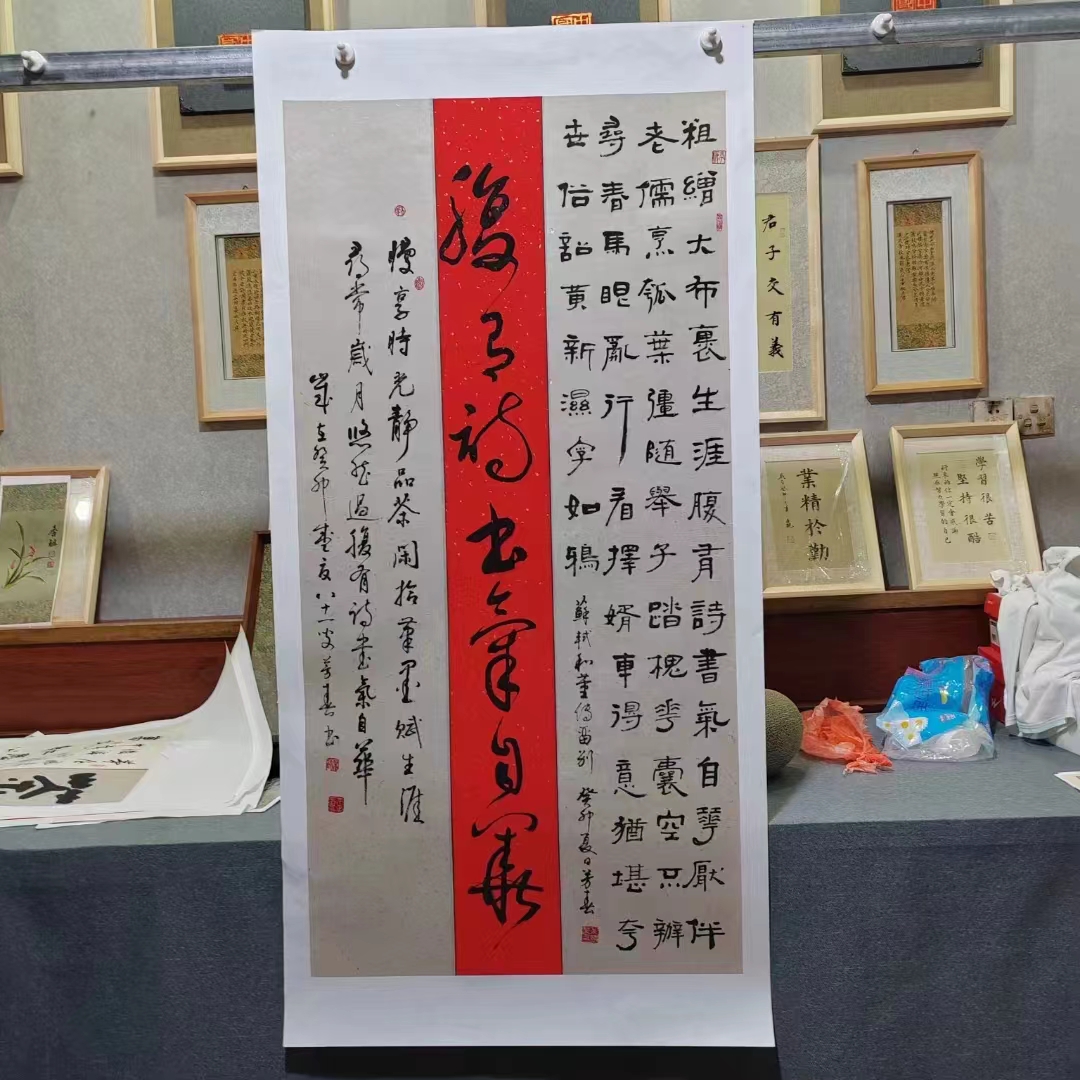 粗繒大布裹生涯腹有詩書氣自華厭伴
老儒烹瓠葉彊隨舉子踏槐花囊空不辦
尋春馬眼亂行看擇婿車得意猶堪夸
世俗詔黃新濕字如鴉
蘇軾和董傳留別 癸卯夏日芳春
腹有詩書氣自華
慢享時光靜品茶閑拾筆墨賦生涯
尋常歲月悠然過腹有詩書氣自華
歲在癸卯孟夏八十一叟芳春書
君子交有義
業精於勤
學習很苦
堅持很酷